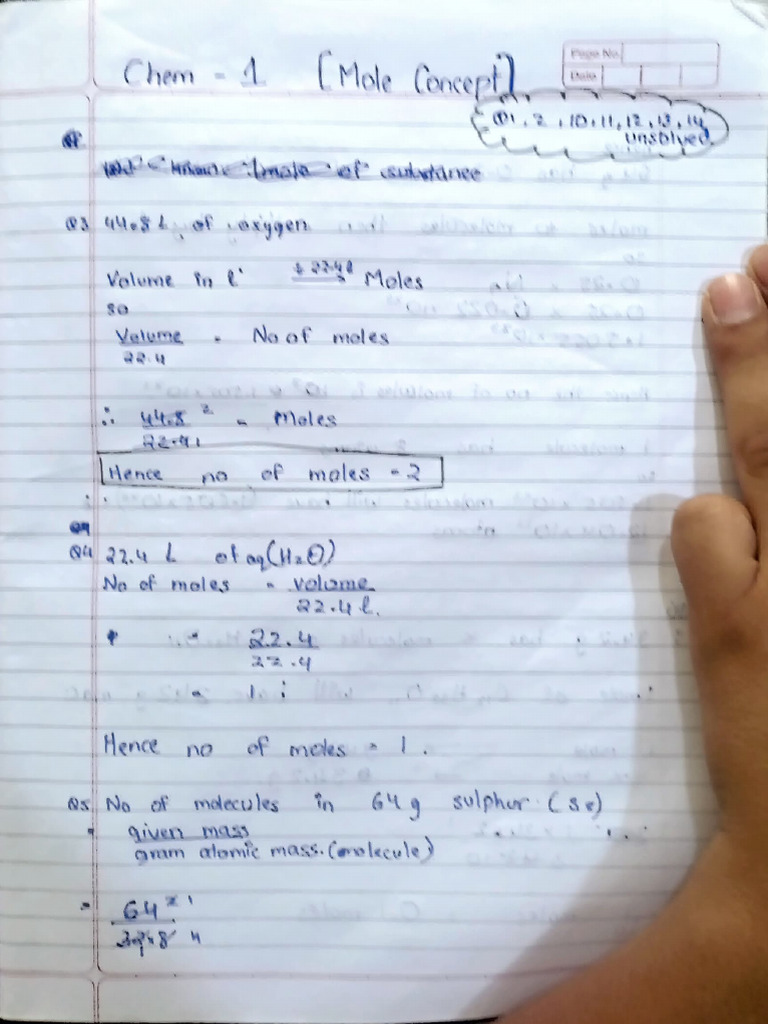 Chem - 1 [Mole Concept]
Page No.
Date
Q1, 2, 10, 11, 12, 13, 14
unsolved.
of substance
Q3 44.8 L of oxygen
Volume in l Moles
so
Volume = No of moles
22.4
∴ 44.8 2 = Moles
22.4 1
Hence no of moles = 2
Q4 22.4 L of aq(H2O)
No of moles = volume
22.4 l.
= 22.4
22.4
= 1
Hence no of moles = 1.
Q5 No of molecules in 64 g sulphur (S8)
= given mass
gram atomic mass. (molecule)
= 64 2 1
32×8 4
1